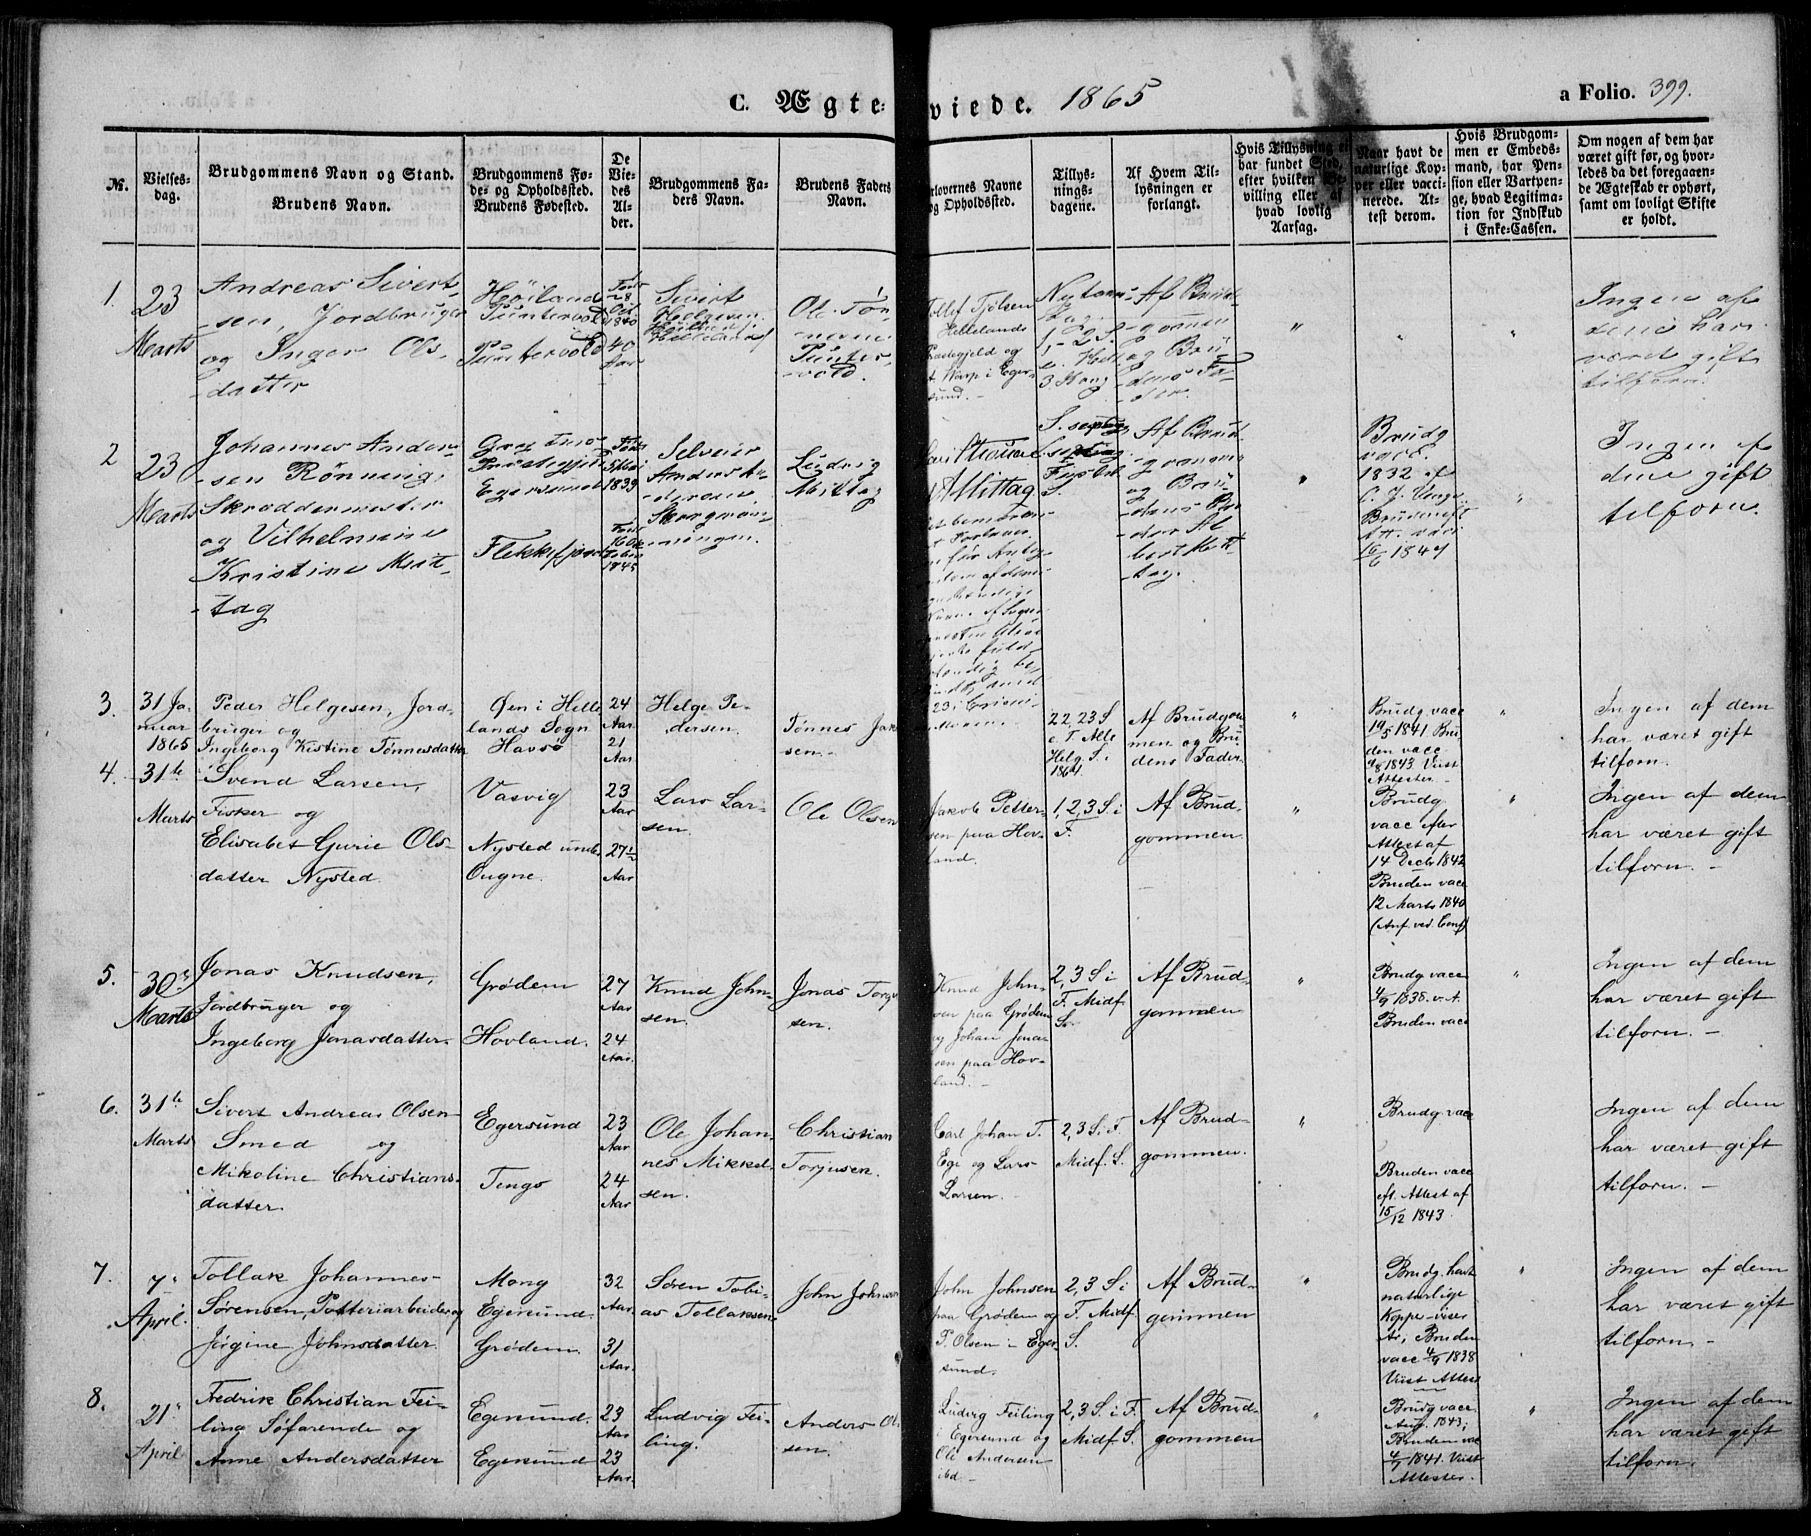 C. Ægteviede. 1865
a Folio. 399.
No.
Vielsesdag.
Brudgommens Navn og Stand.
Brudens Navn.
Brudgommens Føde- og Opholdssted.
Brudens Fødested.
De Viedes Alder.
Brudgommens Faders Navn.
Brudens Faders Navn.
rlovernes Navne
og Opholdssted.
Tillysningsdagene.
Af Hvem Tillysningen er forlangt.
Hvis Tillysning ei har fundet Sted, efter hvilken Bevilling eller af hvad lovlig Aarsag.
Naar havt de naturlige Kopper eller vaccinerede. Attest derom.
Hvis Brudgommen er Embedsmand, har Pension eller Vartpenge, hvad Legitimation for Indskud i Enke-Cassen.
Om nogen af dem har været gift før, og hvorledes da det foregaaende Ægteskab er ophørt, samt om lovligt Skifte er holdt.
1.
23
Marts
Andreas Sivert-
-sen, Jordbruger
og Inger Ols-
-datter
Höiland
Puntervold
Puntervold
1840
40
Aar
Sivert
Helgesen
Ole Tön-
nesen
Punter-
vold.
Tollef Tjölsen
Hellelands
Præstegjeld og
i Eger-
sund.
Af Brud-
-gommen
og Bru-
dens Fa-
der.
"
"
"
Ingen af
dem har
været gift
tilforn.
2
23
Marts
Johannes Ander-
sen Rönning,
Skræddermester
og Vilhelmine
Kristine Mit-
-tag
Præstegjeld
Egersund
Flekkefjord
1839
1845
Anders An-
dersen
Ludvig
Mittag
Mittag
Af Brud-
-gommen
og Bru-
dens Bro
der Al-
bert Mit-
-tag.
"
Brudg
vacc.
1832
1847
"
Ingen af
dem gift
tilforn.
3.
31 Ja-
nuar
1865
Peder Helgesen, Jord-
bruger og
Ingeborg Kistine Tønnesdatter
Øen i Helle
lands Sogn
Havsø
24
Aar.
21
Aar
Helge Pe-
dersen.
Tønnes Jak
sen.
22, 23 S
e. T. Alle
Helg. S. i
1864.
Af Brudgom
men og Bru
dens Fader.
"
Brudg vacc
19/5 1841 Bru
den vacc
1843 Viist
Attester
"
Ingen af dem
har været gift
tilforn.
4.
31te
Marts
Svend Larsen,
Fisker og
Elisabet Gurie Ols-
datter Nysted.
Vasvig
Nysted und.
Ougne.
23
Aar
27½
Aar
Lars Lar-
sen.
Ole Olsen
Jakob Petter-
sen paa Hov-
land.
1, 2, 3 S i
F.
Af Brud-
gommen.
"
Brudg.
vacc efter
Attest af
14 Decbr 1842
Bruden vacc
12 Marts 1840
(Anf. ved Conf)
"
Ingen af dem
har været gift
tilforn. –
5.
30
Marts
Jonas Knudsen,
Jordbruger og
Ingeborg Jonasdatter.
Grødem
Hovland.
27
Aar
24
Aar.
Knud John-
sen.
Jonas Torge
sen.
Knud John-
sen paa Grødem
og Johan Jona-
sen paa Hov-
land. –
2, 3 S i
F. Midf.
S.
Af Brud-
gommen
"
Brudg vacc
4/9 1838. v. A.
Bruden vacc
"
Ingen af dem
har været gift
tilforn. –
6.
31te
Marts
Sivert Andreas Olsen
Smed og
Mikoline Christians-
datter.
Egersund
Tengs
23
Aar
24
Aar
Ole Johan-
nes Mikkel-
sen.
Christian
Torjusen.
Carl Johan T.
Ege og Lars
Larsen.
2, 3 S. i F.
Midf. S.
Af Brud-
gommen.
"
Brudg. vacc
Bruden vacc
eft. Attest af
15/12 1843.
Ingen af dem
har været gift
tilforn. –
7.
7
April.
Tollak Johannes
Sørensen, Potteriarbeider og
Jørgine Johnsdatter
Mong
Egersund
Grødem
32
Aar.
31
Aar.
Søren Tobi-
as Tollaksen
John Johnsen
John Johnsen
paa Grødem og
T. Olsen i Eger
sund.
2, 3 S i
F. Midf.
S.
Af Brud-
gommen
"
Brudg. havt
naturlige
Kopper viser
Ar, Bruden
vacc 4/9 1838
Viist Attest
"
Ingen af dem
har været gift
tilforn. –
8.
21
April
Fredrik Christian Fei-
ling Søfarende og
Anne Andersdatter
Egersund.
Egersund
23
Aar
23
Aar.
Ludvig Fei-
ling.
Anders Ol
sen.
Ludvig Feiling
i Egersund og
Ole Andersen
ibd –
2, 3 S. i F.
Midf S.
Af Brud-
gommen
"
Brudg vacc
Aug. 1843;
Bruden vac
1841. Viist
Attester.
"
Ingen af dem
har været gift
tilforn.